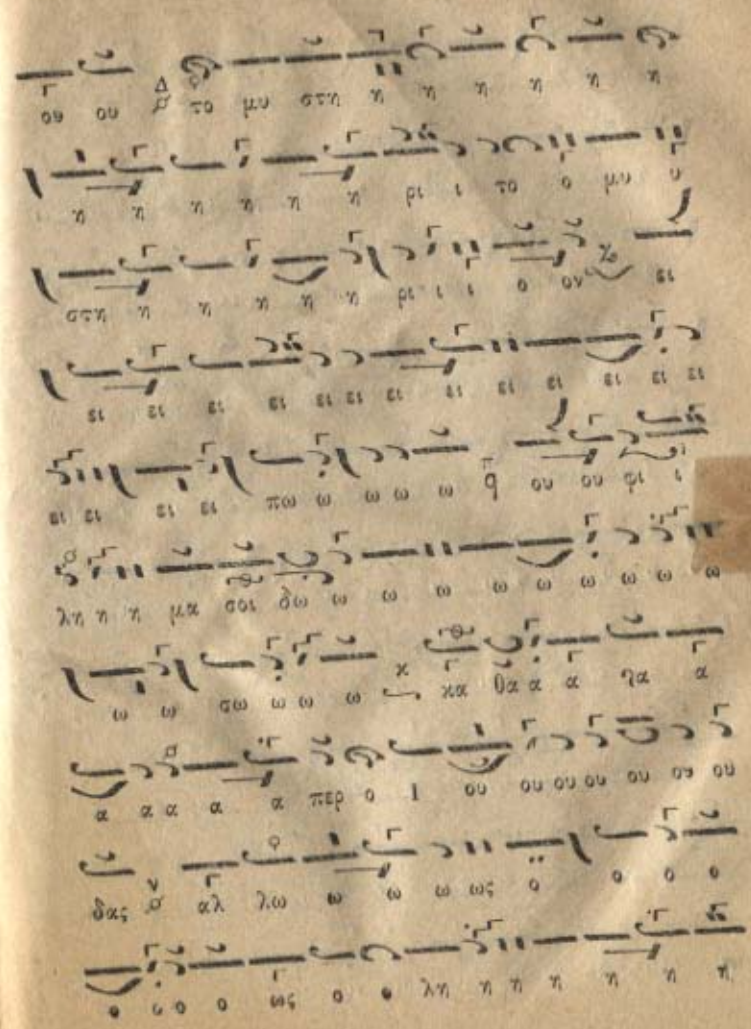 ου ου το μυ στη η η η η η η
η η η η η η ρι ι το ο μυ υ
στη η η η η η ρι ι ι ο ον ει
ει ει ει ει ει ει ει ει ει ει ει ει ει
ει ει ει ει πω ω ω ω ω ου ου φι ι
λη η η μα σοι δω ω ω ω ω ω ω ω ω ω
ω ω σω ω ω ω κα θα α α α
α α α α α περ ο Ι ου ου ου ου ου ου ου
δας αλ λω ω ω ω ως ο ο ο ο
ο ο ο ο ως ο ο λη η η η η η η